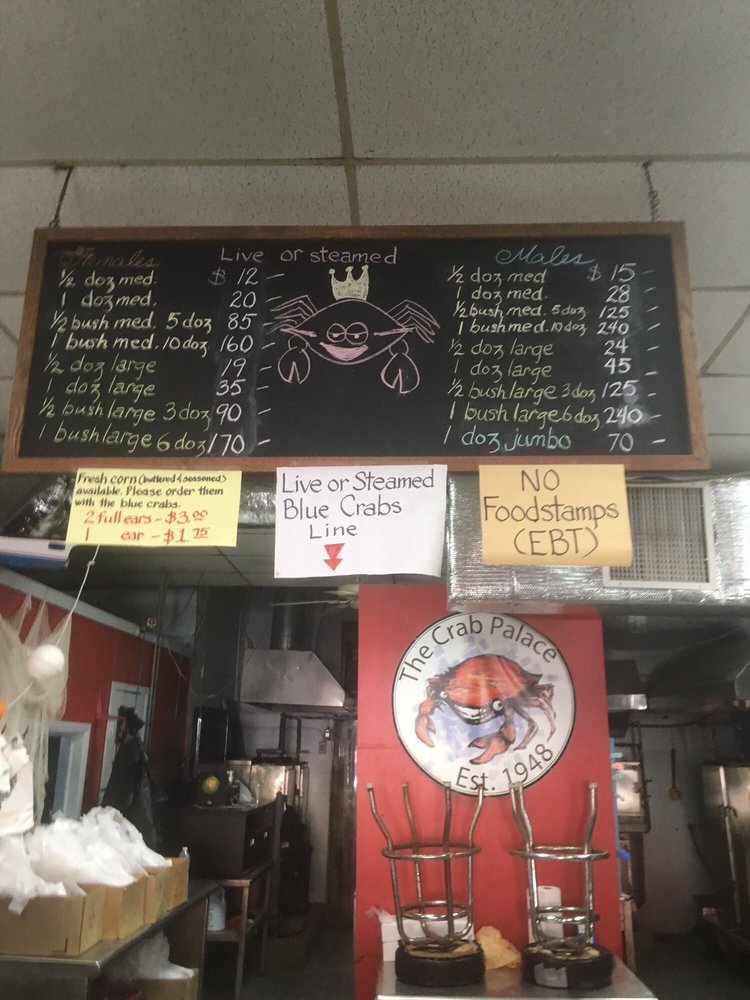 Females
½ doz med. $ 12 –
1 doz med. 20 –
½ bush med. 5 doz 85 –
1 bush med. 10 doz 160 –
½ doz large 19 –
1 doz large 35 –
½ bush large 3 doz 90 –
1 bush large 6 doz 170 –
Live or steamed
Males
½ doz med $ 15 –
1 doz med. 28 –
½ bush med. 5 doz 125 –
1 bush med. 10 doz 240 –
½ doz large 24 –
1 doz large 45 –
½ bush large 3 doz 125 –
1 bush large 6 doz 240 –
1 doz jumbo 70 –
Fresh corn (buttered & seasoned)
available. Please order them
with the blue crabs.
2 full ears – $3.00
1 ear – $1.75
Live or Steamed
Blue Crabs
Line
NO
Foodstamps
(EBT)
The Crab Palace
Est. 1948